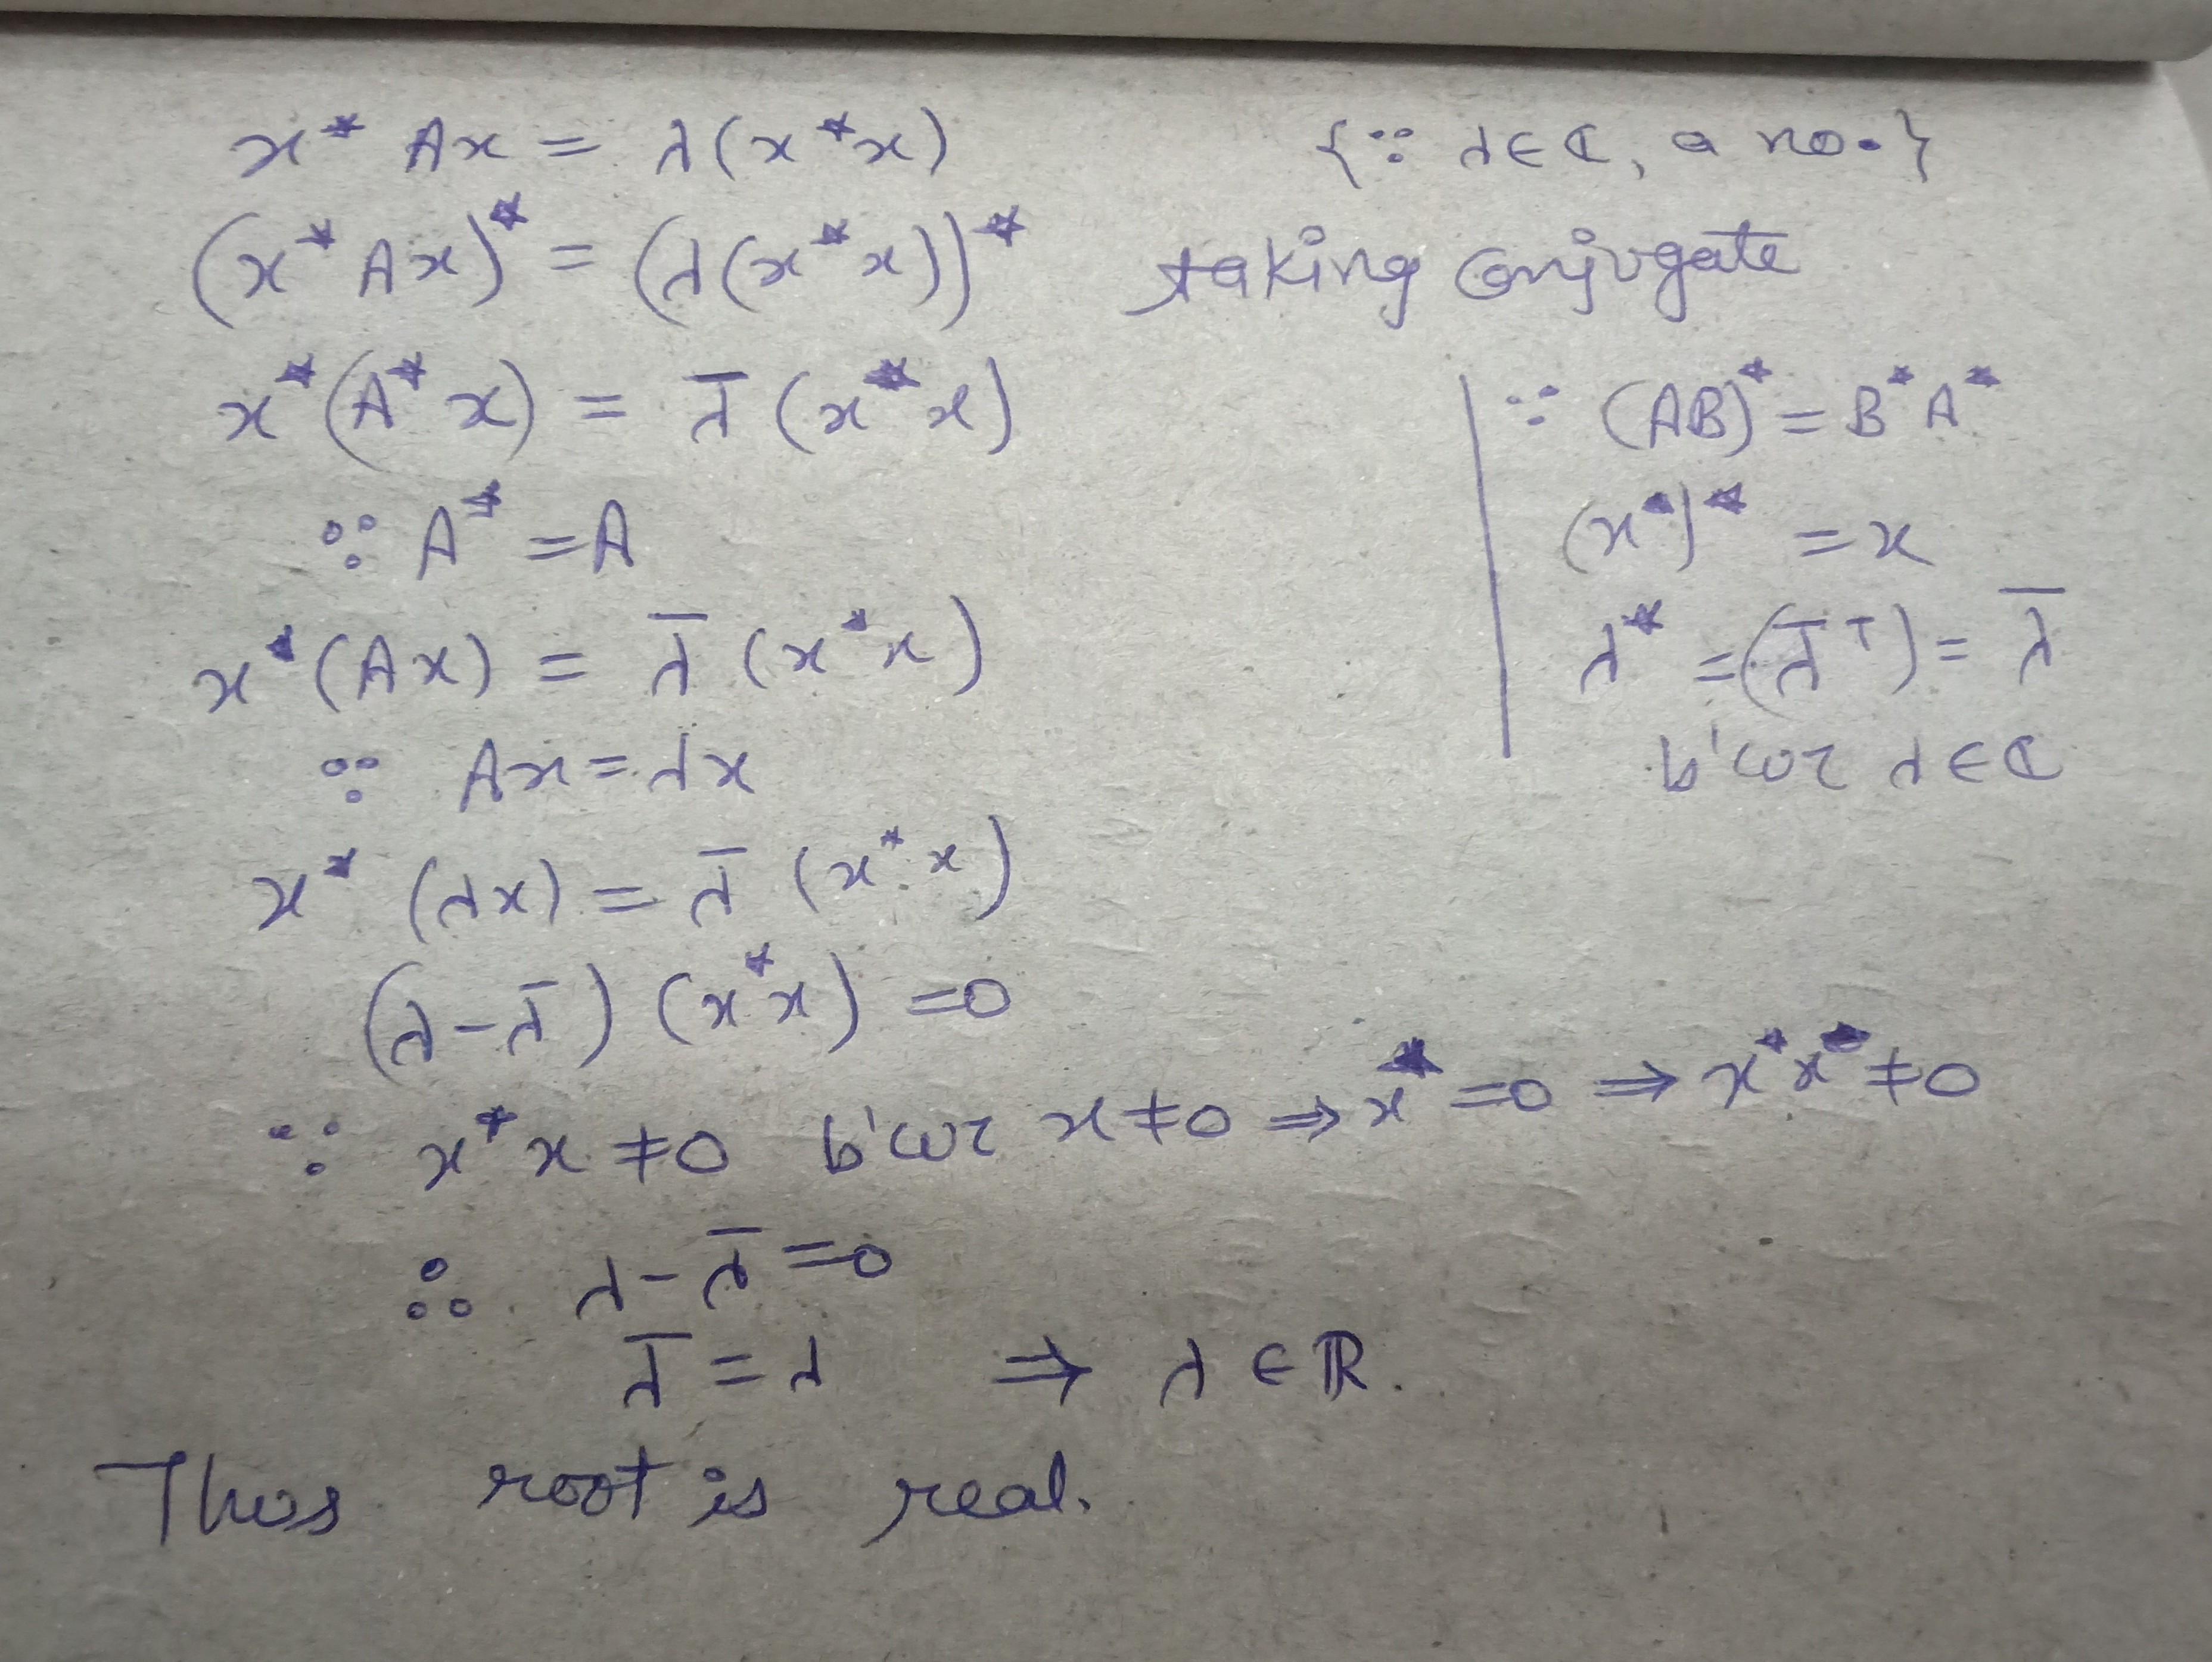 x* Ax = λ(x*x) {∵ λ∈ℂ, a no.}
(x* Ax)* = (λ(x*x))* taking conjugate
x*(A*x) = λ̄(x*x) | ∵ (AB)* = B*A*
∵ A* = A (x*)* = x
x*(Ax) = λ̄(x*x) λ* = (λ̄ᵀ) = λ̄
∵ Ax = λx b'coz λ∈ℂ
x*(λx) = λ̄(x*x)
(λ-λ̄)(x*x) =0
∵ x*x ≠0 b'coz x≠0 ⇒ x* =0 ⇒ x*x ≠0
∴ λ-λ̄ =0
λ̄ = λ ⇒ λ∈ℝ.
Thus root is real.